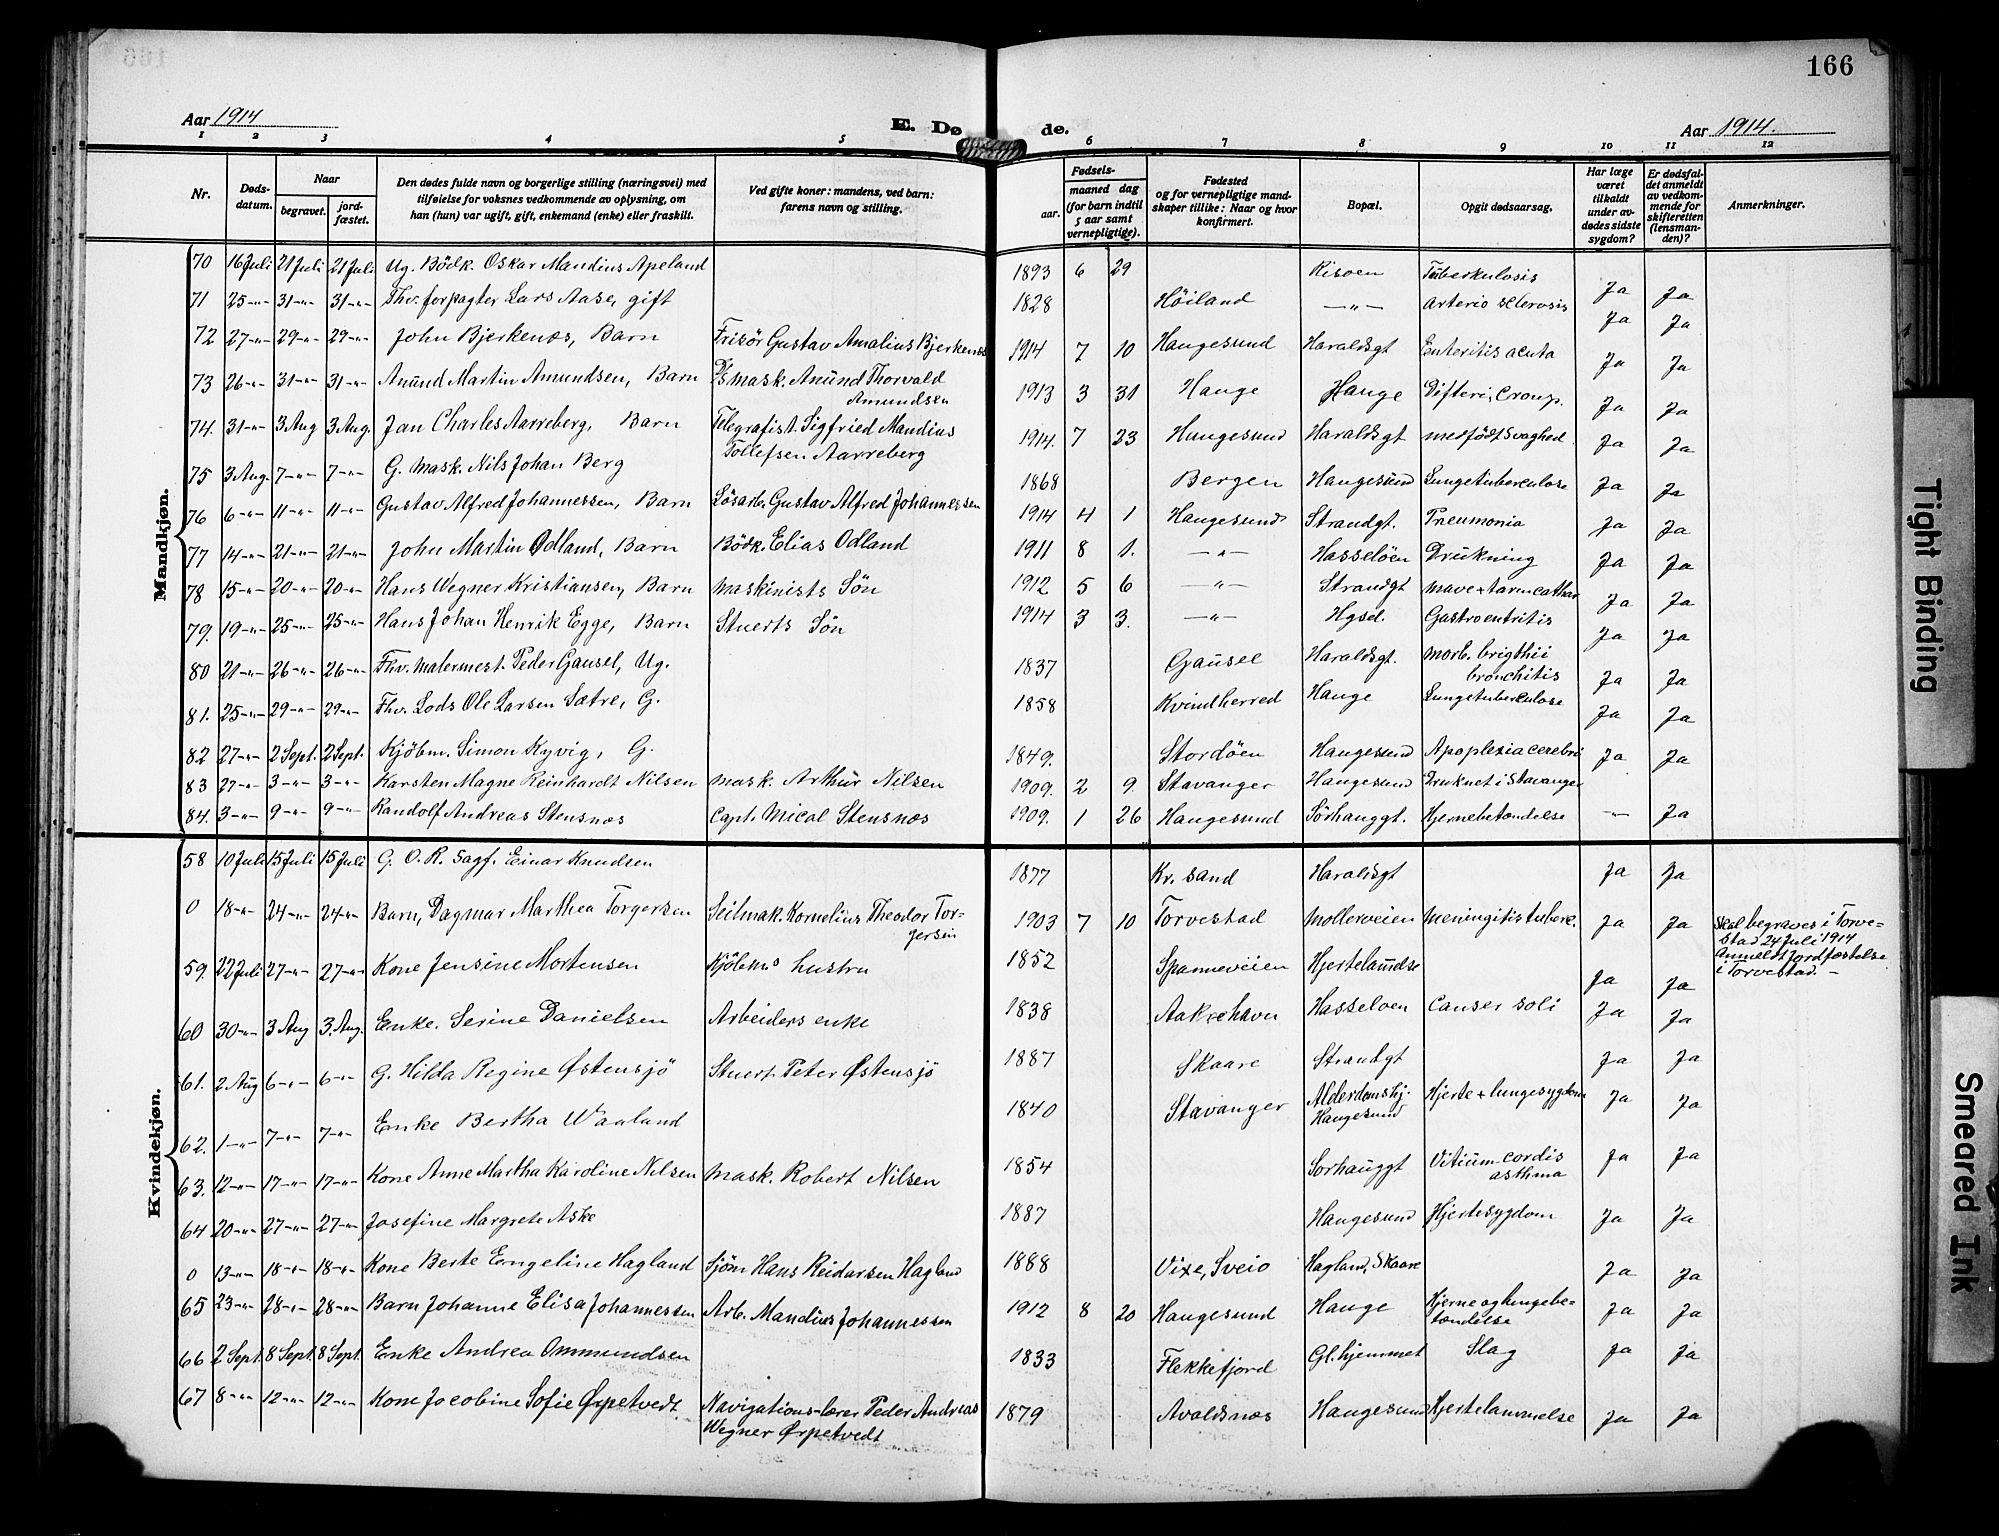 166
Aar 1914
E. Døde.
Aar 1914.
1 2 3 4 5 6 7 8 9 10 11 12
Nr.
Døds-
datum.
Naar
begravet.
jord-
fæstet.
Den dødes fulde navn og borgerlige stilling (næringsvei) med
tilføielse for voksnes vedkommende av oplysning, om
han (hun) var ugift, gift, enkemand (enke) eller fraskilt.
Ved gifte koner: mandens, ved barn:
farens navn og stilling.
Fødsels-
aar.
maaned dag
(for barn indtil
5 aar samt
vernepligtige).
Fødested
og for vernepligtige mand-
skaper tillike: Naar og hvor
konfirmert.
Bopæl.
Opgit dødsaarsag.
Har læge
været
tilkaldt
under av-
dødes sidste
sygdom?
Er dødsfal-
det anmeldt
av vedkom-
mende for
skifteretten
(lensman-
den)?
Anmerkninger.
Mandkjøn.
70 16 Juli 21 Juli 21 Juli Ug. Bödk. Oskar Mandius Apeland 1893 6 29 Risøen Tuberkulosis Ja Ja
71 25-"- 31-"- 31-"- Fhv. forpagter Lars Aase, gift 1828 Höiland -"- Arterio sclerosis Ja Ja
72 27-"- 29-"- 29-"- John Bjerkenæs, Barn Frisör Gustav Amalius Bjerkenæs 1914 7 10 Haugesund Haraldsgt Enteritis acuta Ja Ja
73 26-"- 31-"- 31-"- Anund Martin Amundsen, Barn D/s mask. Anund Thorvald
Amundsen 1913 3 31 Hauge Hauge Difteri, Croup. Ja Ja
74. 31-"- 3 Aug 3 Aug. Jan Charles Aarreberg, Barn Telegrafist Sigfried Mandius
Tollefsen Aarreberg 1914. 7 23 Haugesund Haraldsgt medfödt svaghed Ja Ja
75 3 Aug. 7-"- 7-"- G. Mask. Nils Johan Berg 1868 Bergen Haugesund Lungetuberculose Ja Ja
76 6-"- 11-"- 11-"- Gustav Alfred Johannessen, Barn Lösarb. Gustav Alfred Johannessen 1914 4 1 Haugesund Strandgt. Pneumonia Ja Ja
77 14-"- 21-"- 21-"- John Martin Odland, Barn Bödk. Elias Odland 1911 8 1. -"- Hasseløen Drukning Ja Ja
78 15-"- 20-"- 20-"- Hans Wegner Kristiansen, Barn Maskinists Sön 1912 5 6 -"- Strandgt mave + tarmcathar Ja Ja
79. 19-"- 25-"- 25-"- Hans Johan Henrik Egge, Barn Stuerts Sön 1914 3 3. -"- Hgsd. Gastroentritis Ja Ja
80 21-"- 26-"- 26-"- Fhv. malermest. Peder Gausel, Ug. 1837 Gausel Haraldsgt. Morb. brigthii
bronchitis Ja Ja
81. 25-"- 29-"- 29-"- Fhv. Lods Ole Larsen Sætre, G. 1858 Kvindherred Hauge Lungetuberculose Ja Ja
82 27-"- 2 Sept. 2 Sept. Kjöbm. Simon Kyvig, G. 1849. Stordöen Haugesund Apoplexia cerebri Ja Ja
83 27-"- 3-"- 3-"- Karsten Magne Reinhardt Nilsen mask. Arthur Nilsen 1909. 2 9. Stavanger Haugesund Druknet i Stavanger
84. 3-"- 9-"- 9-"- Randolf Andreas Stensnæs Capt. Mical Stensnæs 1909. 1 26 Haugesund Sörhauggt. Hjernebetændelse -"- Ja
Kvindekjøn.
58 10 Juli 15 Juli 15 Juli G. O. R. sagf. Einar Knudsen 1877 Kr. sand Haraldsgt Ja Ja
0 18-"- 24-"- 24-"- Barn, Dagmar Marthea Torgersen Seilmak. Kornelius Theodor Tor-
gersen 1903 7 10 Torvestad Möllerveien Meningitis tuberc. Ja Ja Skal begraves i Torve-
stad 24 Juli 1914
Anmeldt jordfæstelse
i Torvestad. -
59. 22 Juli 27-"- 27-"- Kone Jensine Mortensen Kjöbms hustru 1852 Spanneveien Hjertelamdse Ja Ja
60 30-"- 3 Aug 3. Aug. Enke. Serine Danielsen Arbeiders enke 1838 Aakrehavn Hasseloen Canser soli Ja Ja
61. 2 Aug 6-"- 6-"- G. Hilda Regine Østensjö Stuert Peter Østensjö 1887 Skaare Strandgt Ja Ja
62. 1-"- 7-"- 7-"- Enke Bertha Waaland 1840 Stavanger Alderdomshj.
Haugesund Hjerte + lungesygdom Ja Ja
63. 12-"- 17-"- 17-"- Kone Anne Martha Karoline Nilsen Mask. Robert Nilsen 1854 Sorhauggt Vitium cordis
asthma Ja Ja
64 20-"- 27-"- 27-"- Josefine Margrete Aske 1887 Haugesund Hjertesygdom Ja Ja
0 13-"- 18-"- 18-"- Kone Berte Engeline Hagland Sjöm Hans Reidarsen Hagland 1888 Vixe, Sveio Hagland, Skaare Ja Ja
65 23-"- 28-"- 28-"- Barn Johanne Elisa Johannessen Arb. Mandius Johannessen 1912 8 20 Haugesund Hauge Hjerne og lungebe-
tændelse Ja Ja
66 2 Sept. 8 Sept. 8 Sept. Enke Andrea Ommundsen 1833 Flekkefjord Gl. hjemmet Slag Ja Ja
67 8-"- 12-"- 12-"- Kone Jacobine Sofie Ørpetvedt. Navigations-lærer Peder Andreas
Wegner Ørpetvedt 1879 Avaldsnæs Haugesund Hjertelammelse Ja Ja
Tight Binding
Smeared Ink